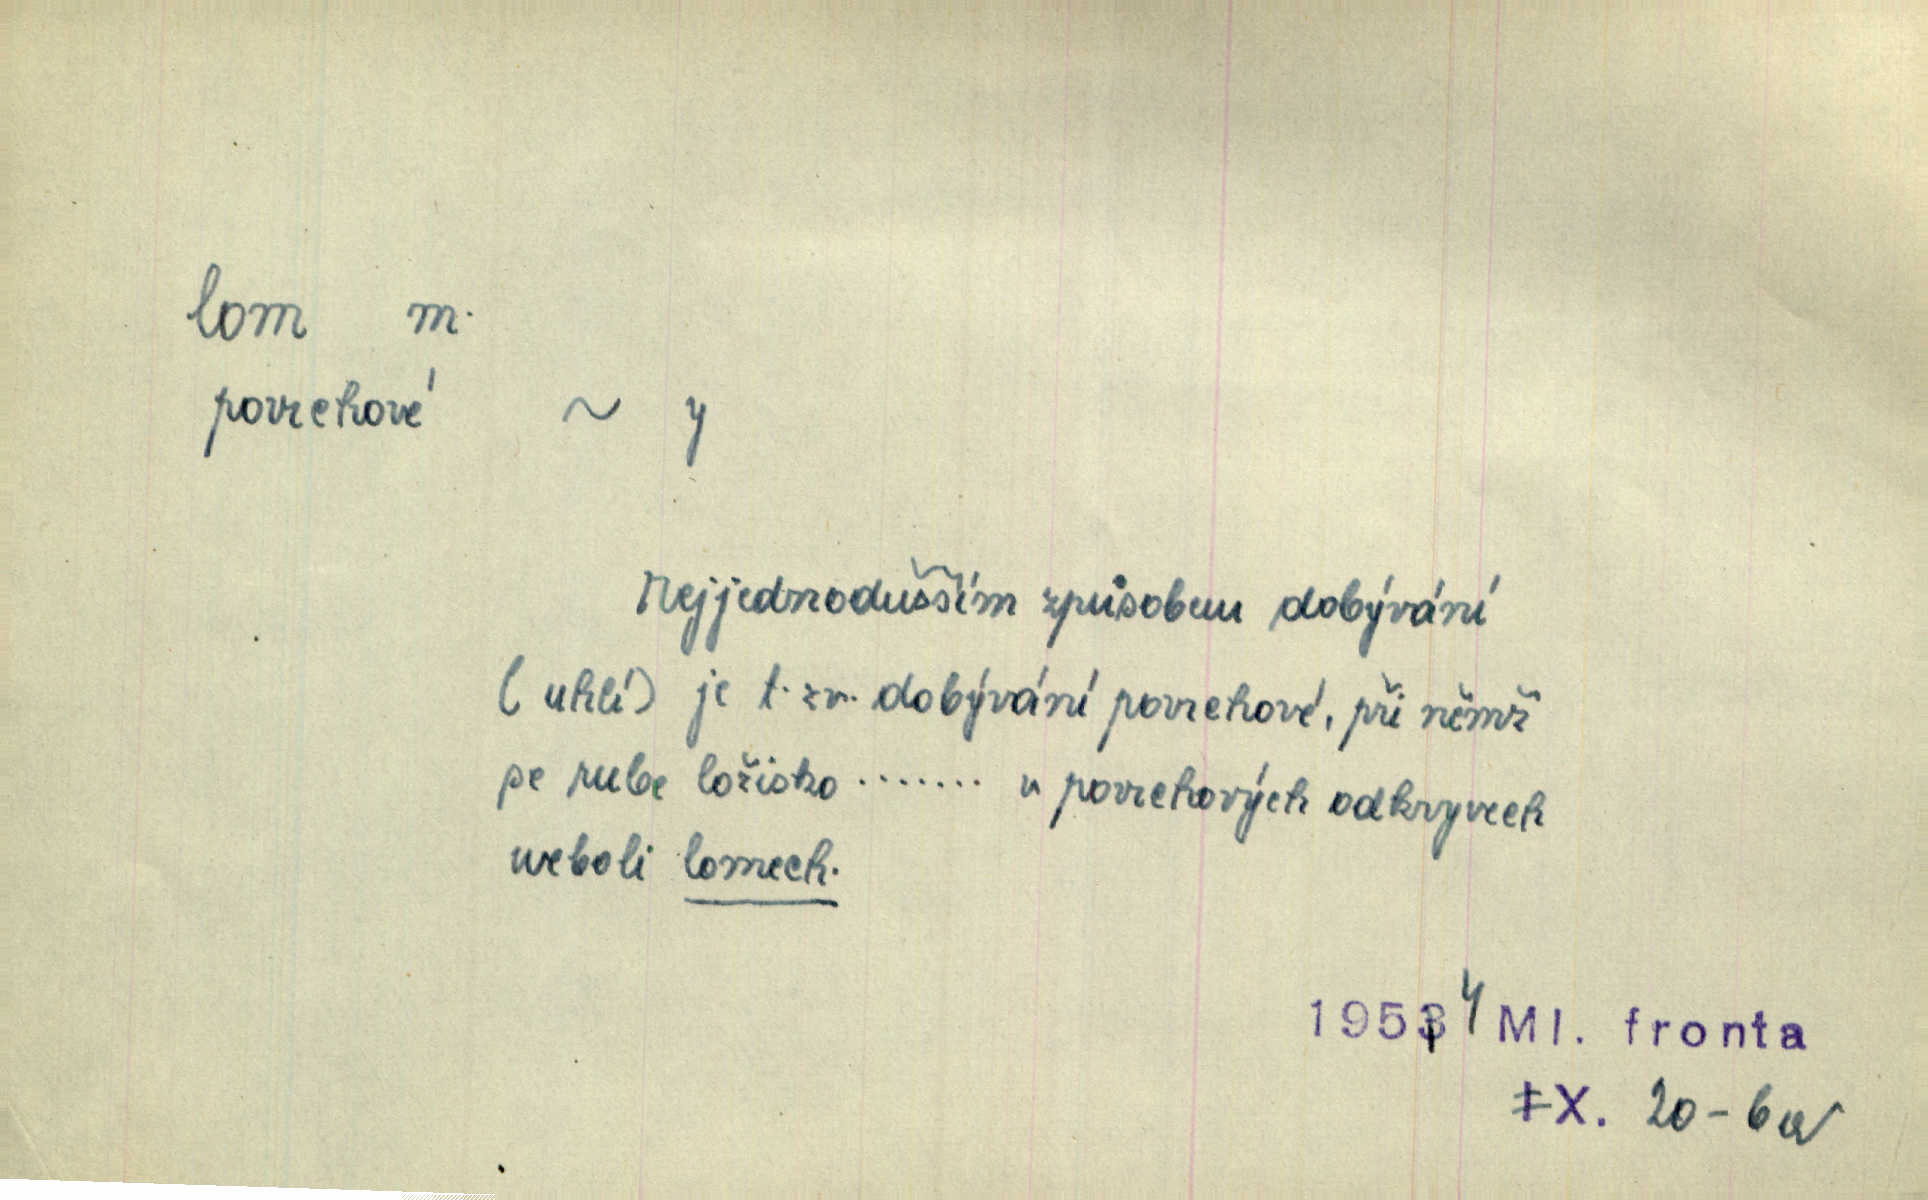 lom m.
povrchové ~ y
Nejjednodušším způsobem dobývání
(uhlí) je t. zv. dobývání povrchové, při němž
se rube ložisko ........ v povrchových odkryvech
neboli lomech.
1954 Ml. fronta
X. 20-6a